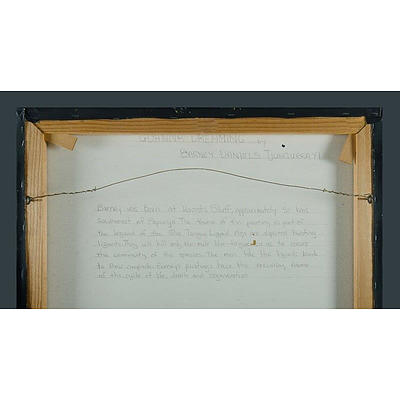 GOANNA DREAMING by
BARNEY DANIELS TJUNGURRAYI
Barney was born at Haasts Bluff, approximately 50 kms
Southwest of Papunya. The of this painting is part of
the legend of the Blue Tongue Lizard. Men are depicted hunting
lizards. They will kill only the male blue tongue so as to ensure
the continuity of the species. The men take the lizards back
to their campsite. Barneys paintings have the recurring theme
of the cycle of life, death and regeneration.